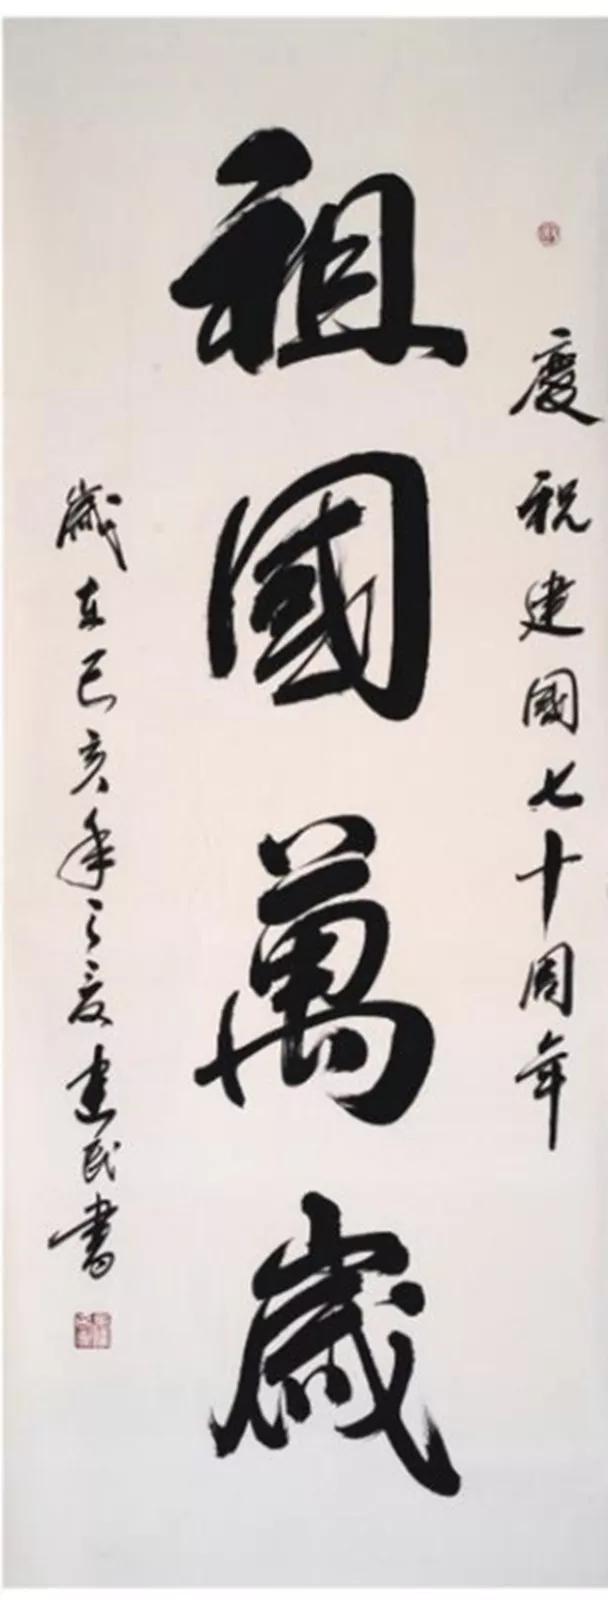 慶祝建國七十周年
祖國萬歲
歲在己亥年之夏建民書